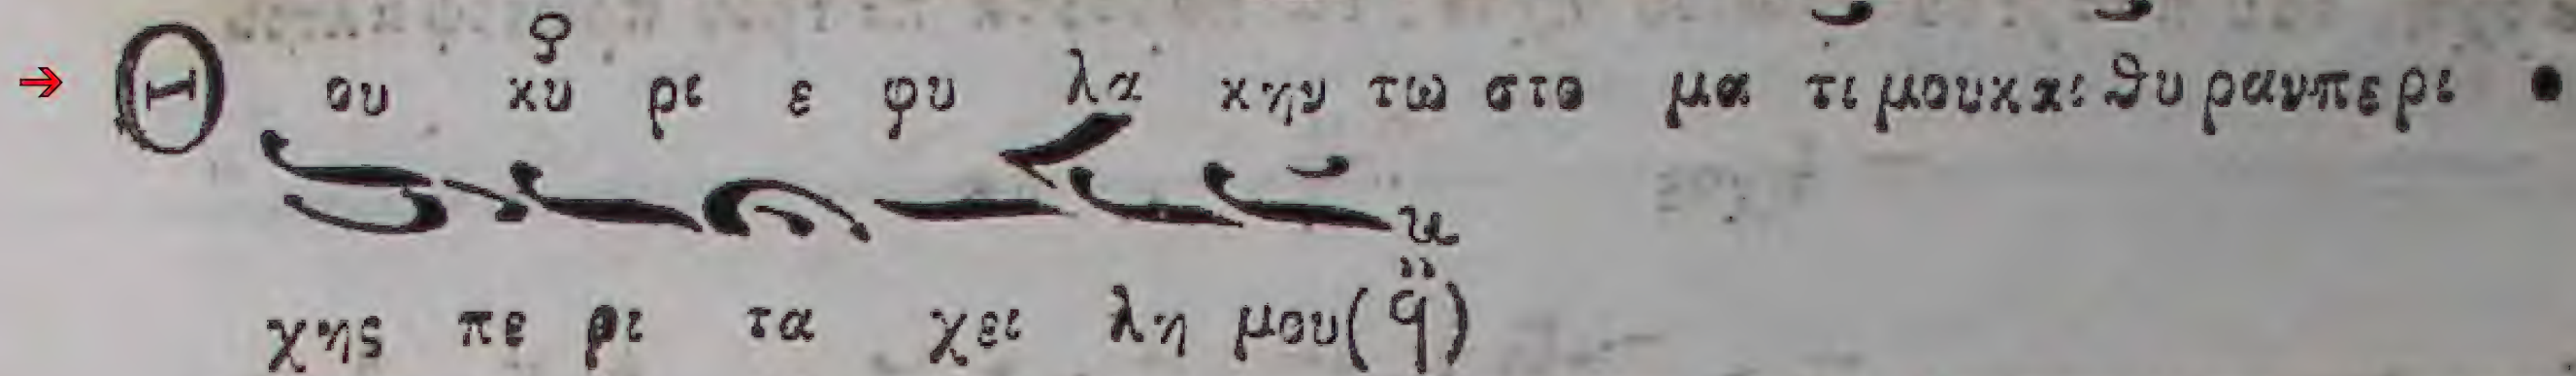 Θου κυ ρι ε φυ λα κην τω στο μα τι μου και θυ ραν περι ο
χης πε ρι τα χει λη μου (ϥ)